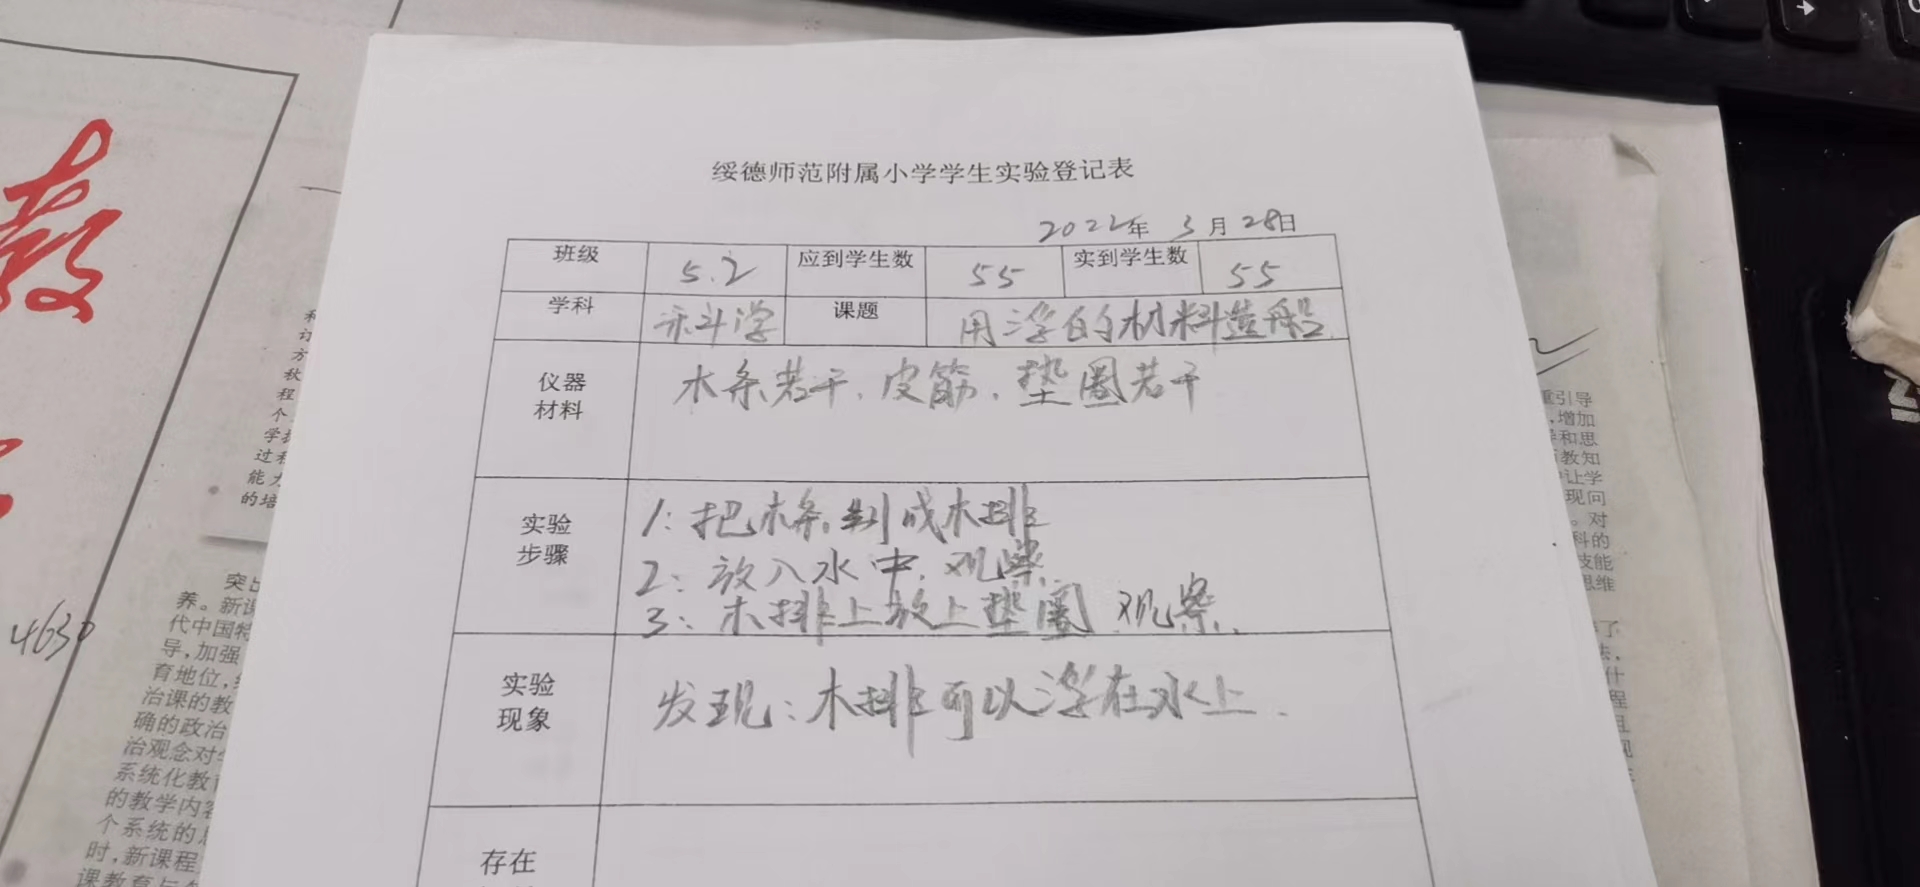 绥德师范附属小学学生实验登记表
2022年 3月 28日
班级 5.2 应到学生数 55 实到学生数 55
学科 科学 课题 用浮的材料造船
仪器材料 木条若干、皮筋、垫圈若干
实验步骤
1: 把木条 制成木排
2: 放入水中, 观察
3: 木排上放上垫圈 观察.
实验现象
发现: 木排可以浮在水上.
存在
教
4630
突出
养。新课
代中国特
导,加强
育地位,
治课的教
确的政治
治观念对
系统化教育
的教学内容
个系统的
时,新课程
课教育与
订
方
秋
程
个
学
过程
能力
的培
重引导
,增加
和思
教知
让学
现问
。对
科的
技能
思维